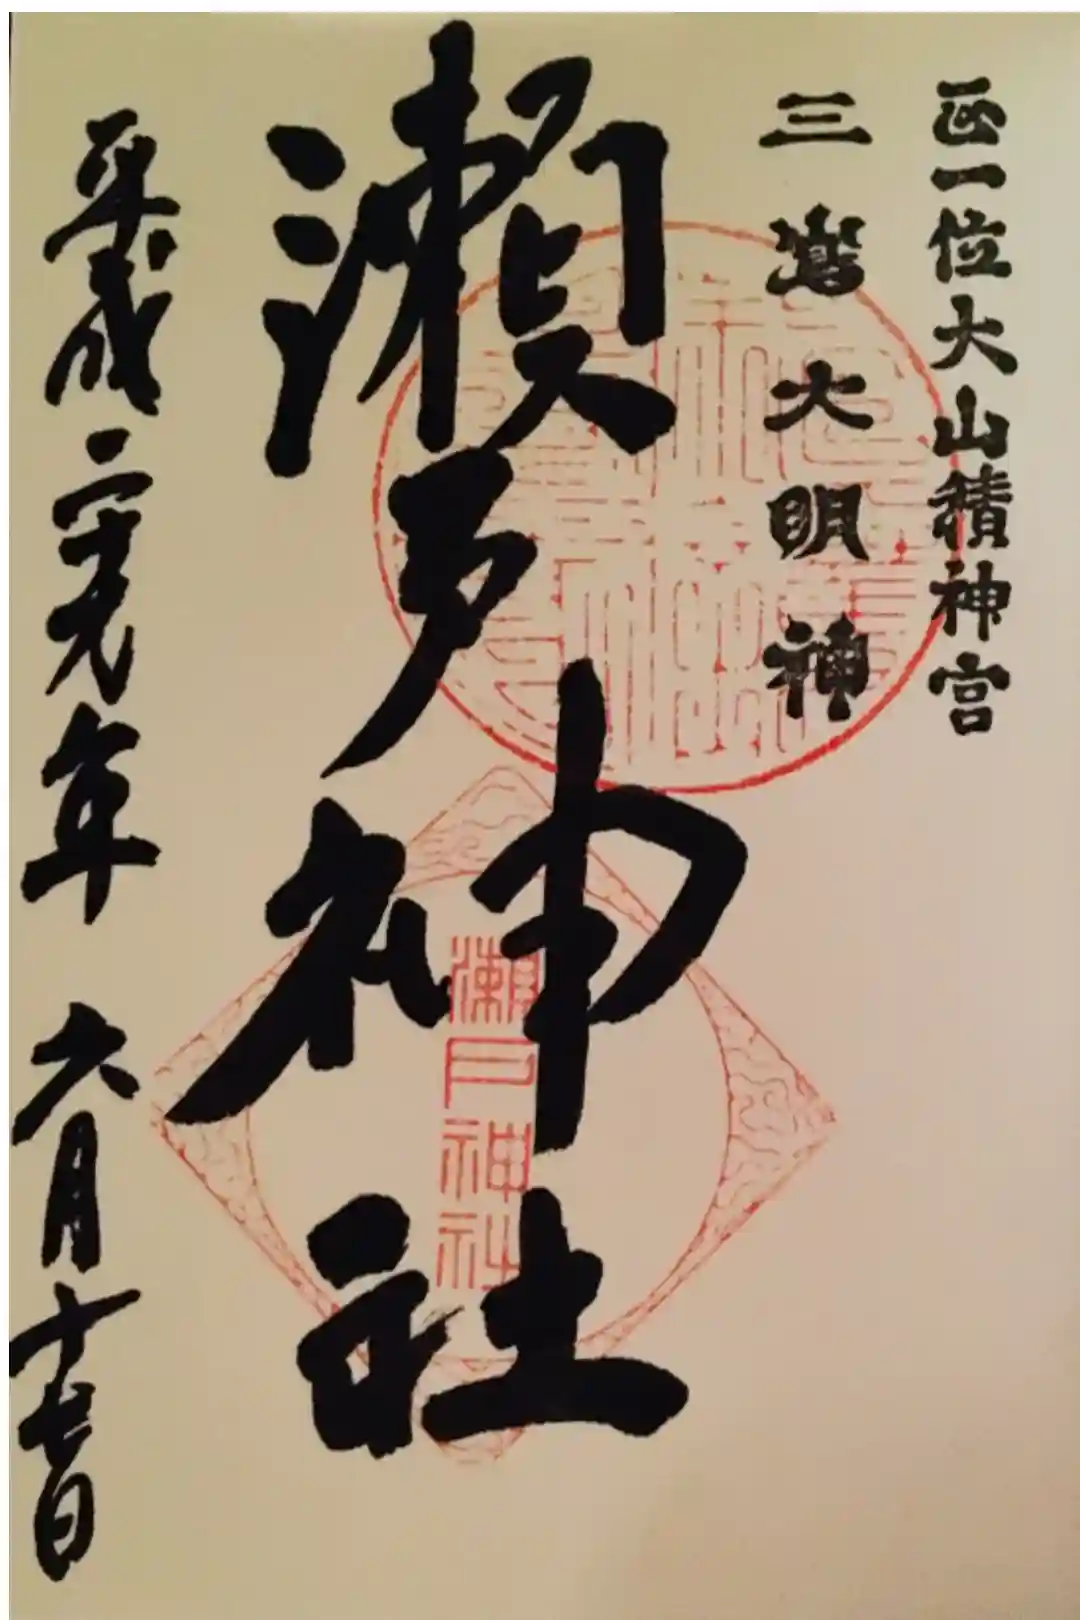 正一位大山積神宮
三嶌大明神
瀬戸神社
平成二十九年 六月十七日
瀬戸神社